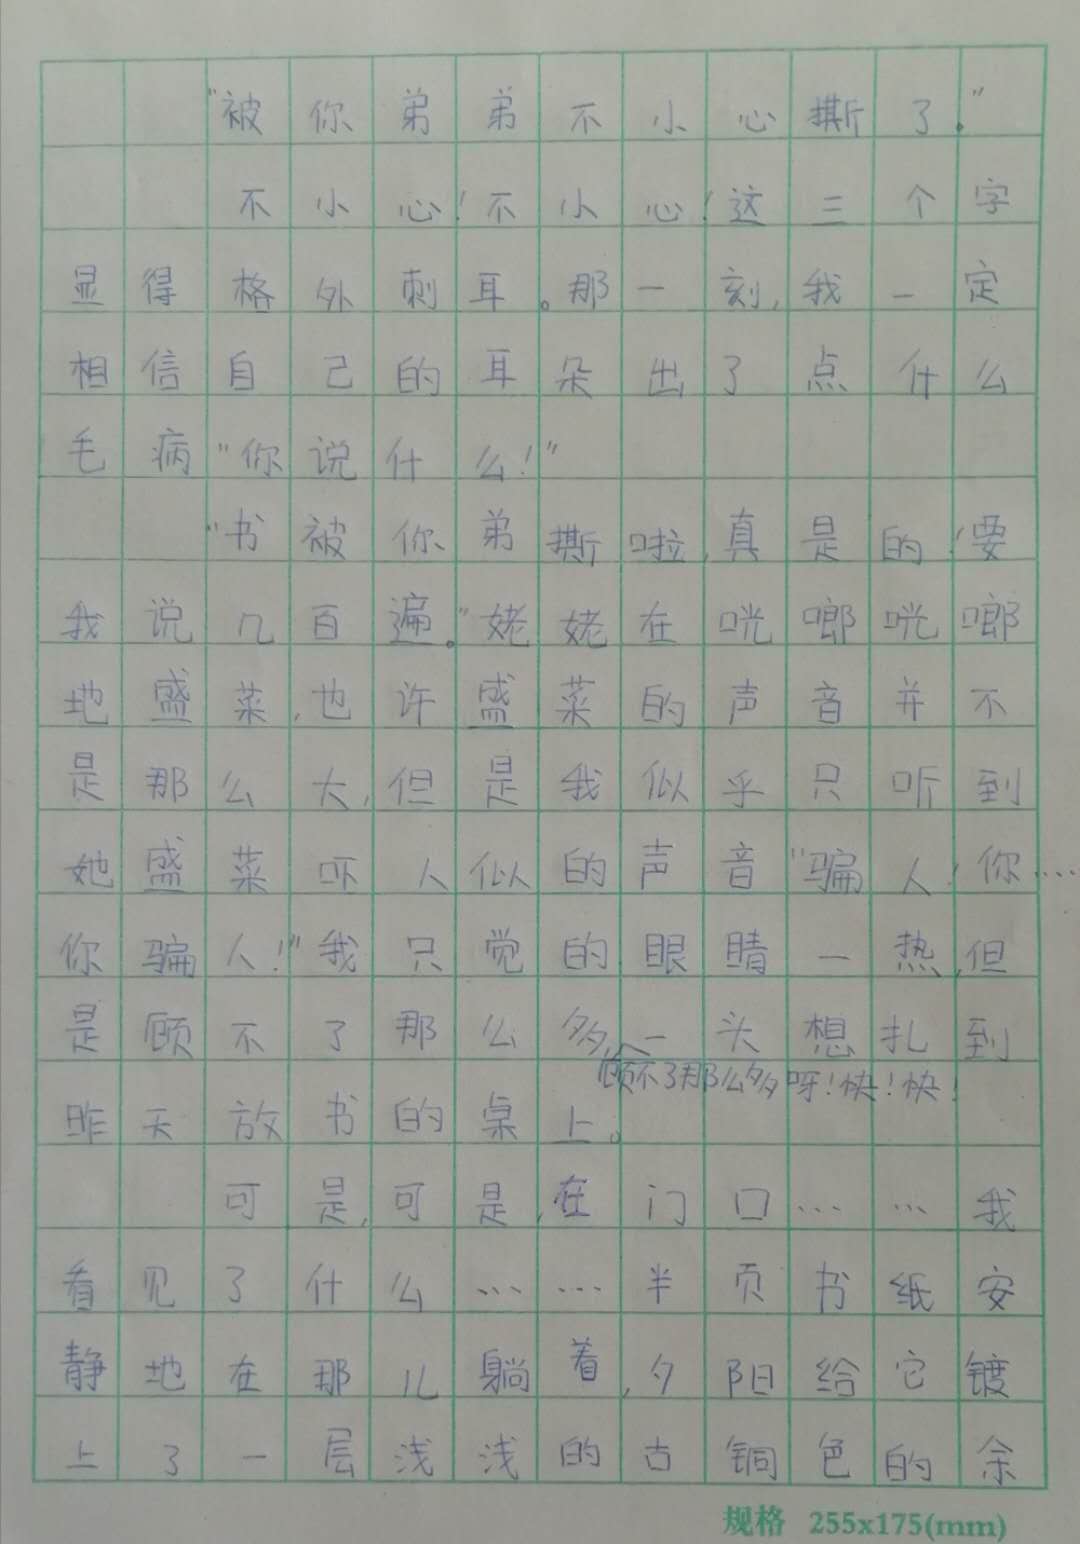 “被你弟弟不小心撕了。”
不小心！不小心！这三个字
显得格外刺耳。那一刻，我一定
相信自己的耳朵出了点什么
毛病“你说什么！”
“书被你弟撕啦，真是的！要
我说几百遍。”姥姥在咣啷咣啷
地盛菜，也许盛菜的声音并不
是那么大，但是我似乎只听到
她盛菜吓人似的声音“骗人！你……
你骗人！”我只觉的眼睛一热，但
是顾不了那么多，一头想扎到
顾不了那么多呀！快！快！
昨天放书的桌上。
可是，可是，在门口……我
看见了什么……半页书纸安
静地在那儿躺着，夕阳给它镀
上了一层浅浅的古铜色的余
规格 255x175(mm)